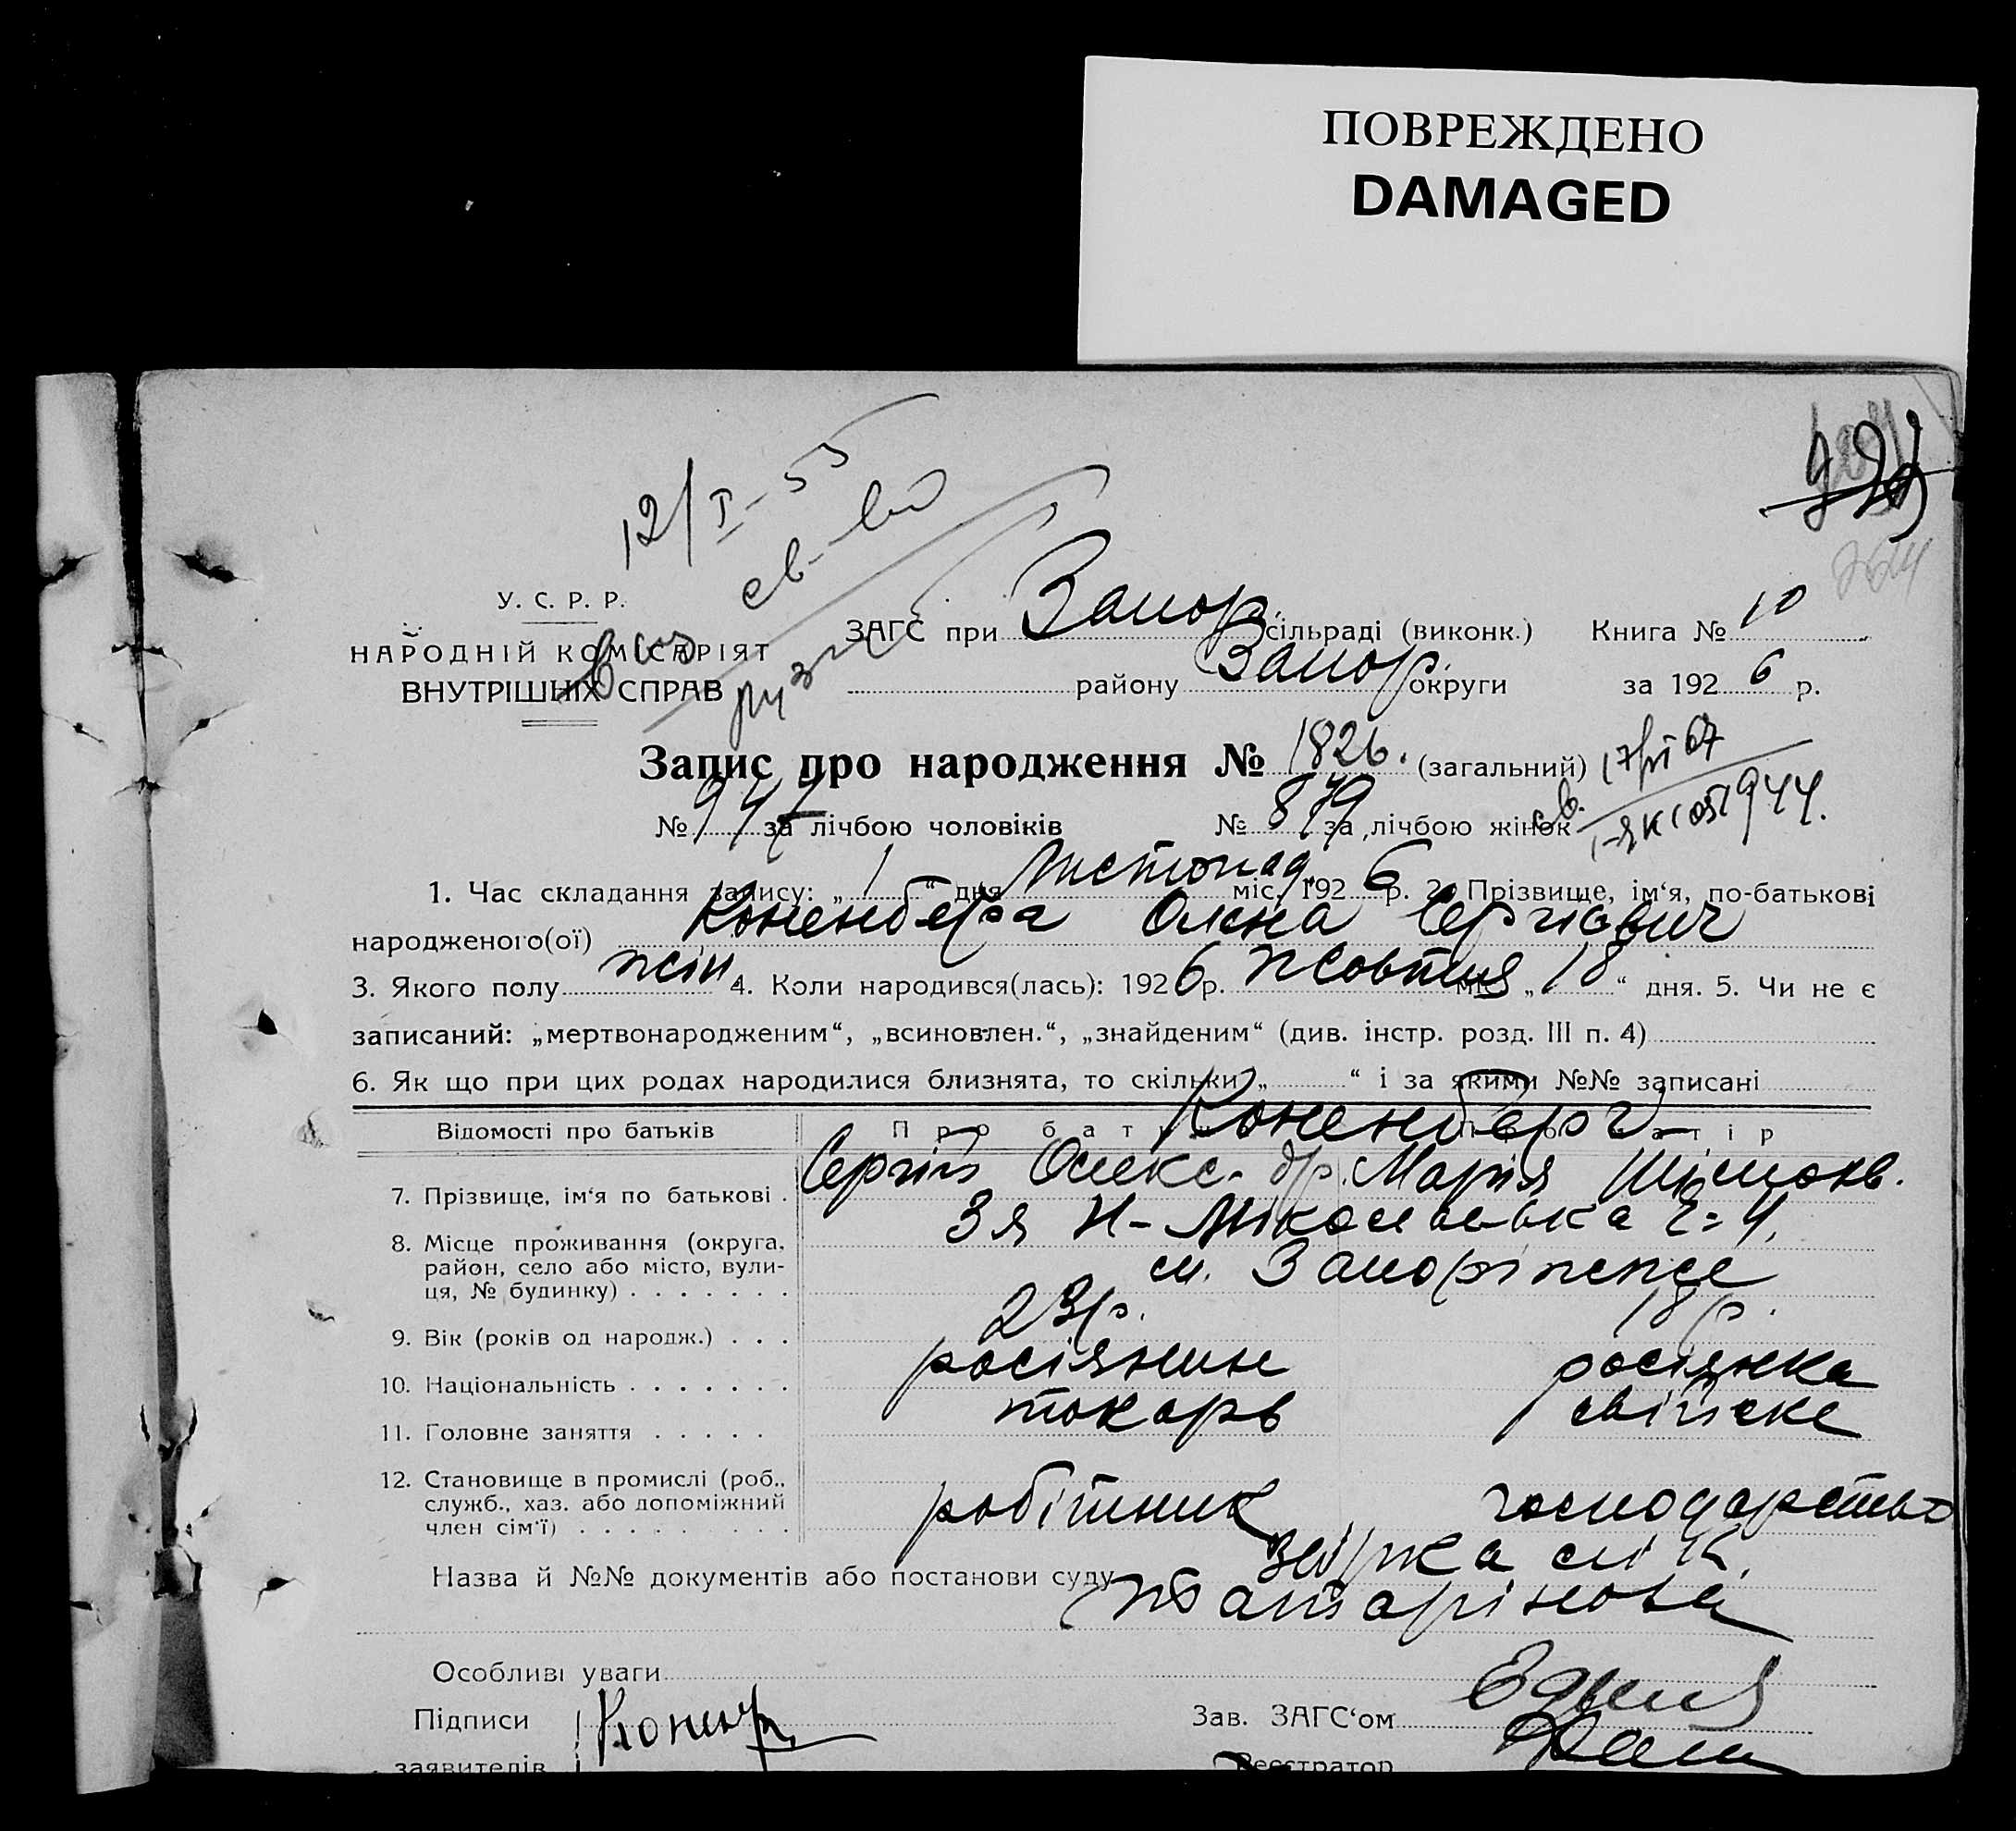 ПОВРЕЖДЕНО
DAMAGED
12/I-55
св-во
У. С. Р. Р.
НАРОДНІЙ КОМІСАРІЯТ
ВНУТРІШНІХ СПРАВ
ЗАГС при Запор. сільраді (виконк.) Книга № 10
району Запор. округи за 1926 р.
Запис про народження № 1826. (загальний)
17/VI 67
№ 947 за лічбою чоловіків № 879 за лічбою жінок
1. Час складання запису: „1“ дня Листопад. міс. 1926 р. 2. Прізвище, ім‘я, по-батькові
народженого(ої) Коненберга Олена Сергієвич
3. Якого полу жін. 4. Коли народився(лась): 1926 р. Жовтня міс. „18“ дня. 5. Чи не є
записаний: „мертвонародженим“, „всиновлен.“, „знайденим“ (див. інстр. розд. III п. 4)
6. Як що при цих родах народилися близнята, то скільки „ “ і за якими №№ записані
Відомості про батьків Про батька Про матір
Коненберг
7. Прізвище, ім‘я по батькові . Сергій Олекс-др. Марія
8. Місце проживання (округа, район, село або місто, вулиця, № будинку) . . . . . . . 3я Н-Мікольська 4,
м. Запоріжже
9. Вік (років од народж.) . . . 23 р. 18 р.
10. Національність . . . . . . . росіянин росіянка
11. Головне заняття . . . . . токарь свійске
12. Становище в промислі (роб., служб., хаз. або допоміжний член сім‘ї) . . . . . . . . . робітник господарство
Назва й №№ документів або постанови суду
Особливі уваги
Підписи
заявителів
Зав. ЗАГС‘ом
Реєстратор